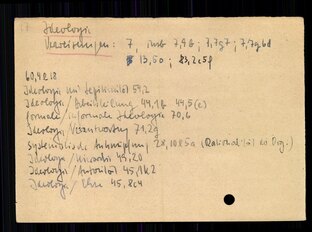 Ideologie
Verweisungen: 7, insb 7,9b ; 7,7g7 ; 7,7g6d
13,50 ; 83,2c5f
60,4e18
Ideologie und Legitimität 54,2
Ideologie / Arbeitsteilung 44,1b 44,5(c)
formale / informale Ideologie 70,6
Ideologie, Verantwortung 71,2g
Systematische Anknüpfung 28,10E5a (Rationalität d. Org.)
Ideologie / Hierarchie 43,20
Ideologie / Autorität 45,1k2
Ideologie / 45,8c4